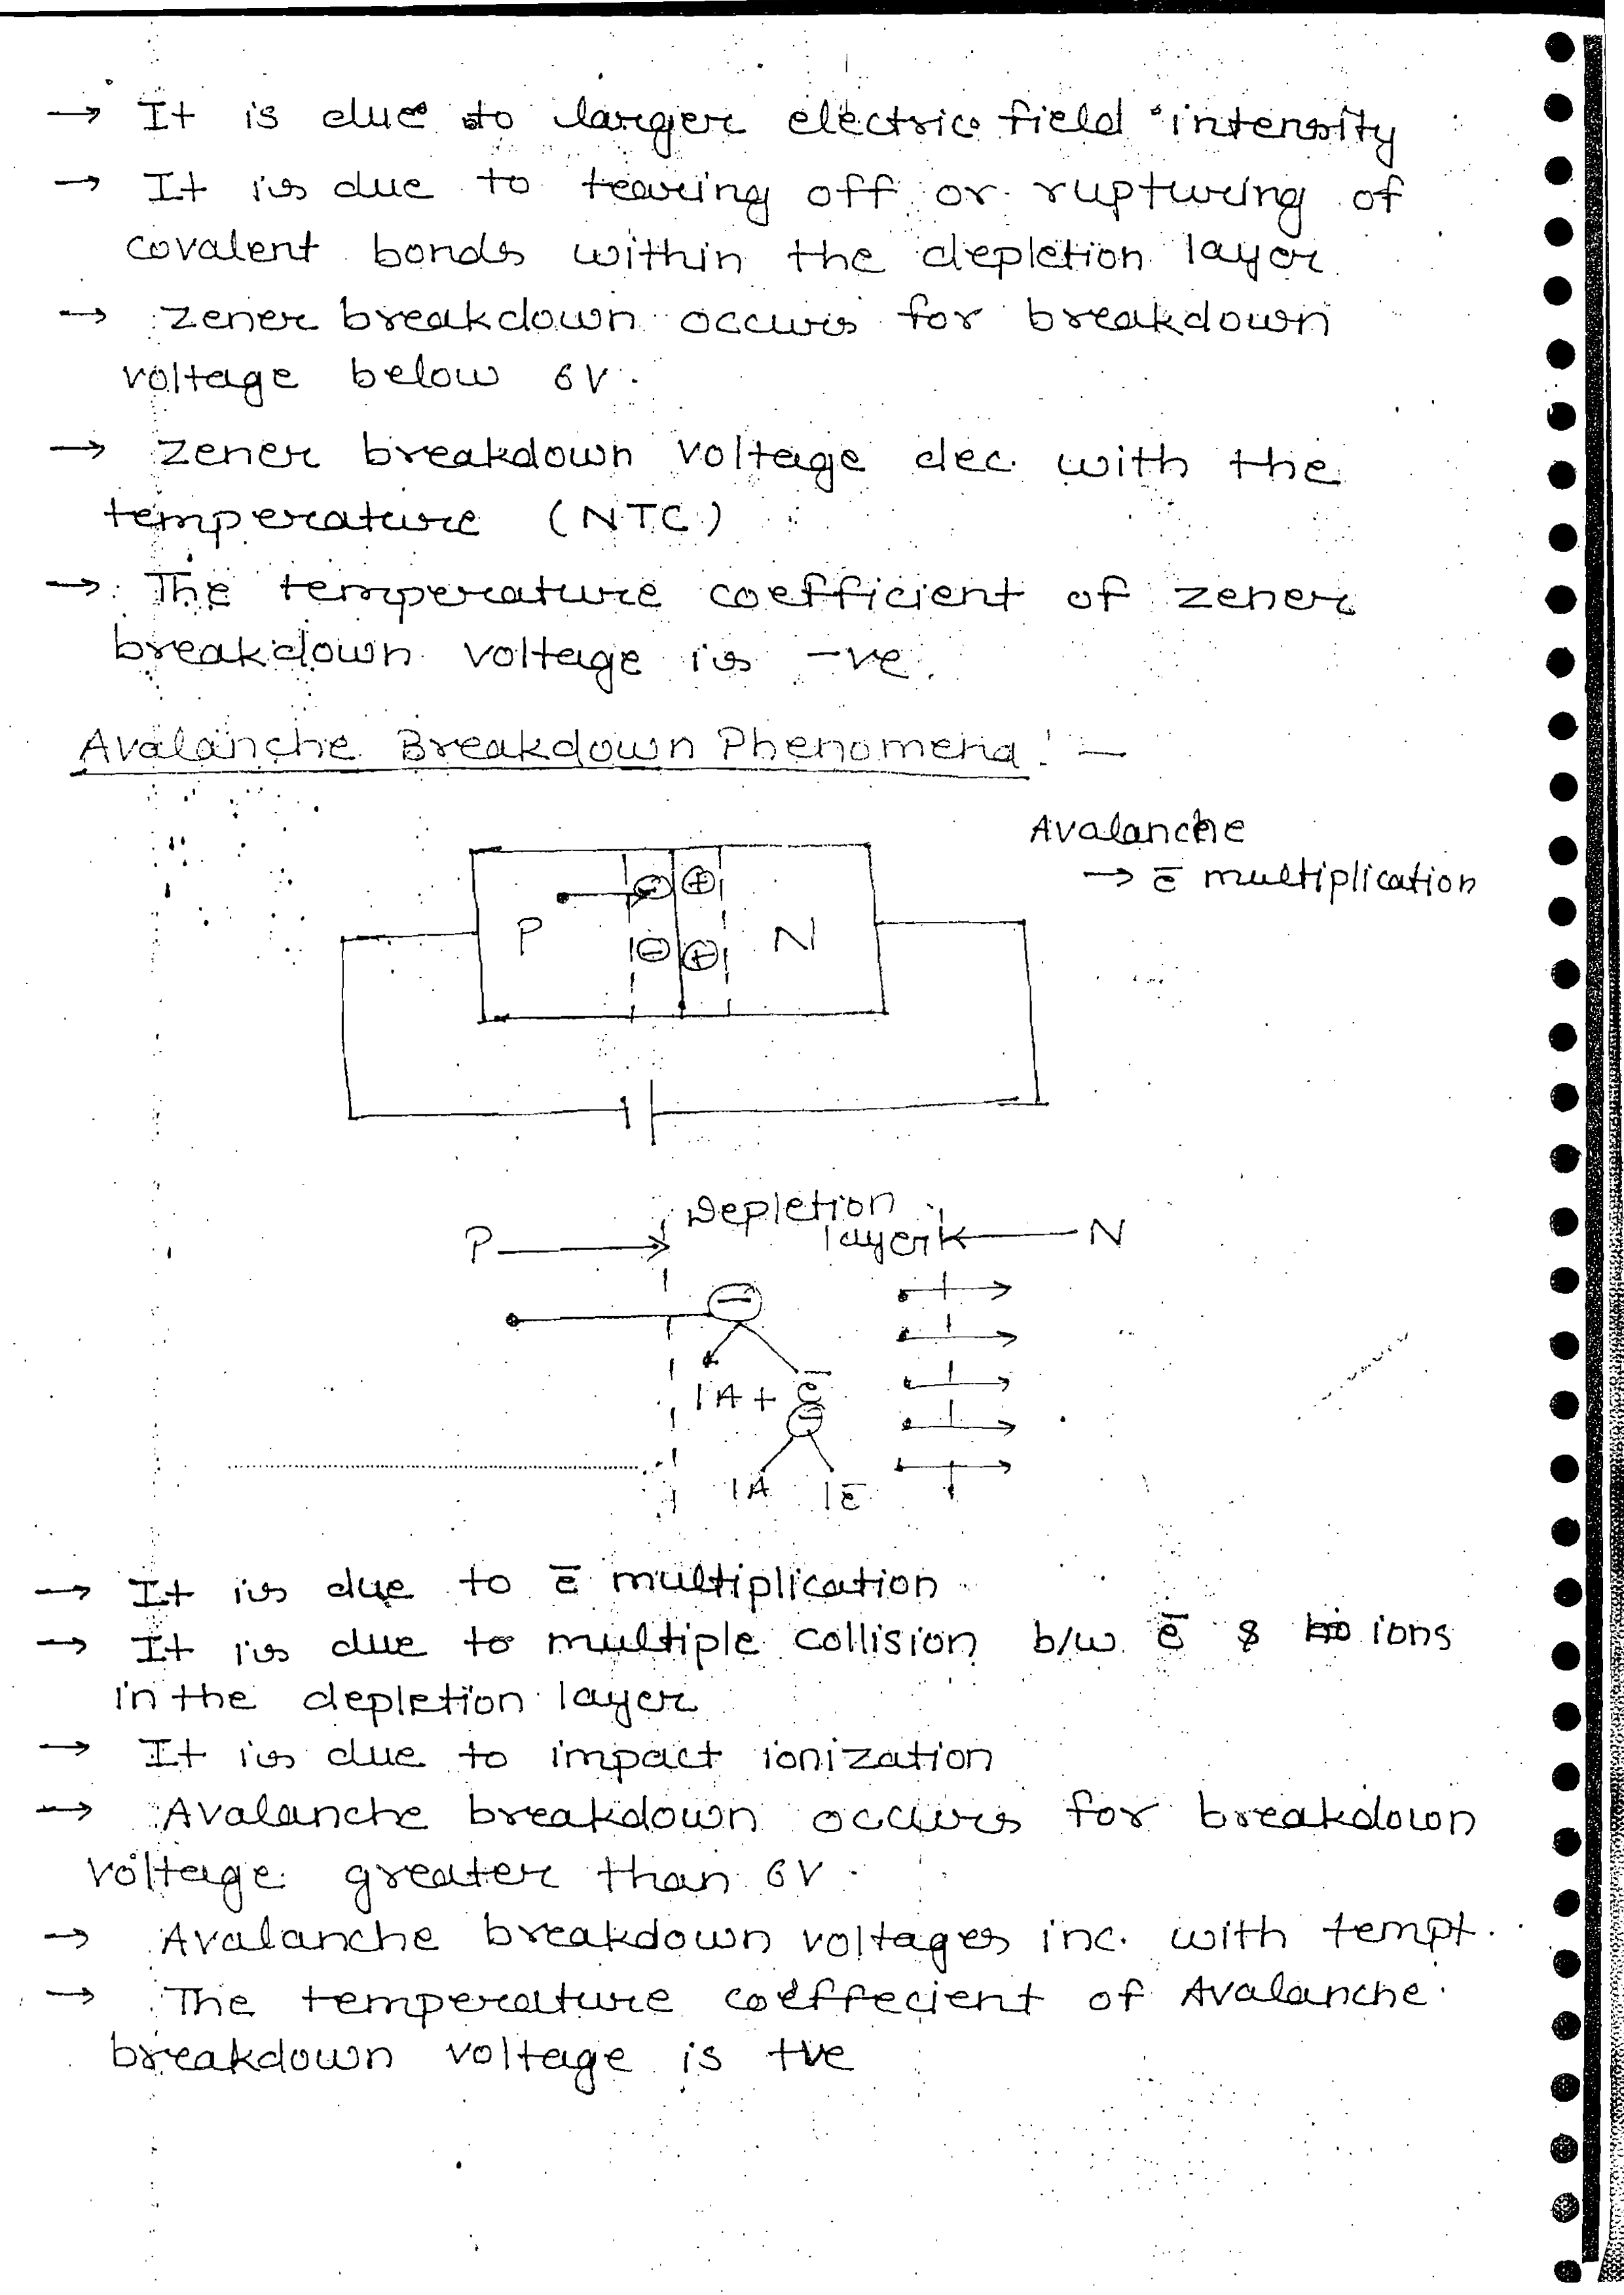 → It is due to larger electric field intensity
→ It is due to tearing off or rupturing of
covalent bonds within the depletion layer
→ Zener breakdown occurs for breakdown
voltage below 6V.
→ Zener breakdown voltage dec. with the
temperature (NTC)
→ The temperature coefficient of zener
breakdown voltage is -ve.
Avalanche Breakdown Phenomena :-
Avalanche
→ e̅ multiplication
P ⊖ ⊕ N
⊖ ⊕
P Depletion layer N
1A + e̅
1A 1e̅
→ It is due to e̅ multiplication
→ It is due to multiple collision b/w e̅ & ions
in the depletion layer
→ It is due to impact ionization
→ Avalanche breakdown occurs for breakdown
voltage greater than 6V.
→ Avalanche breakdown voltages inc. with tempt.
→ The temperature coeffecient of Avalanche
breakdown voltage is +ve